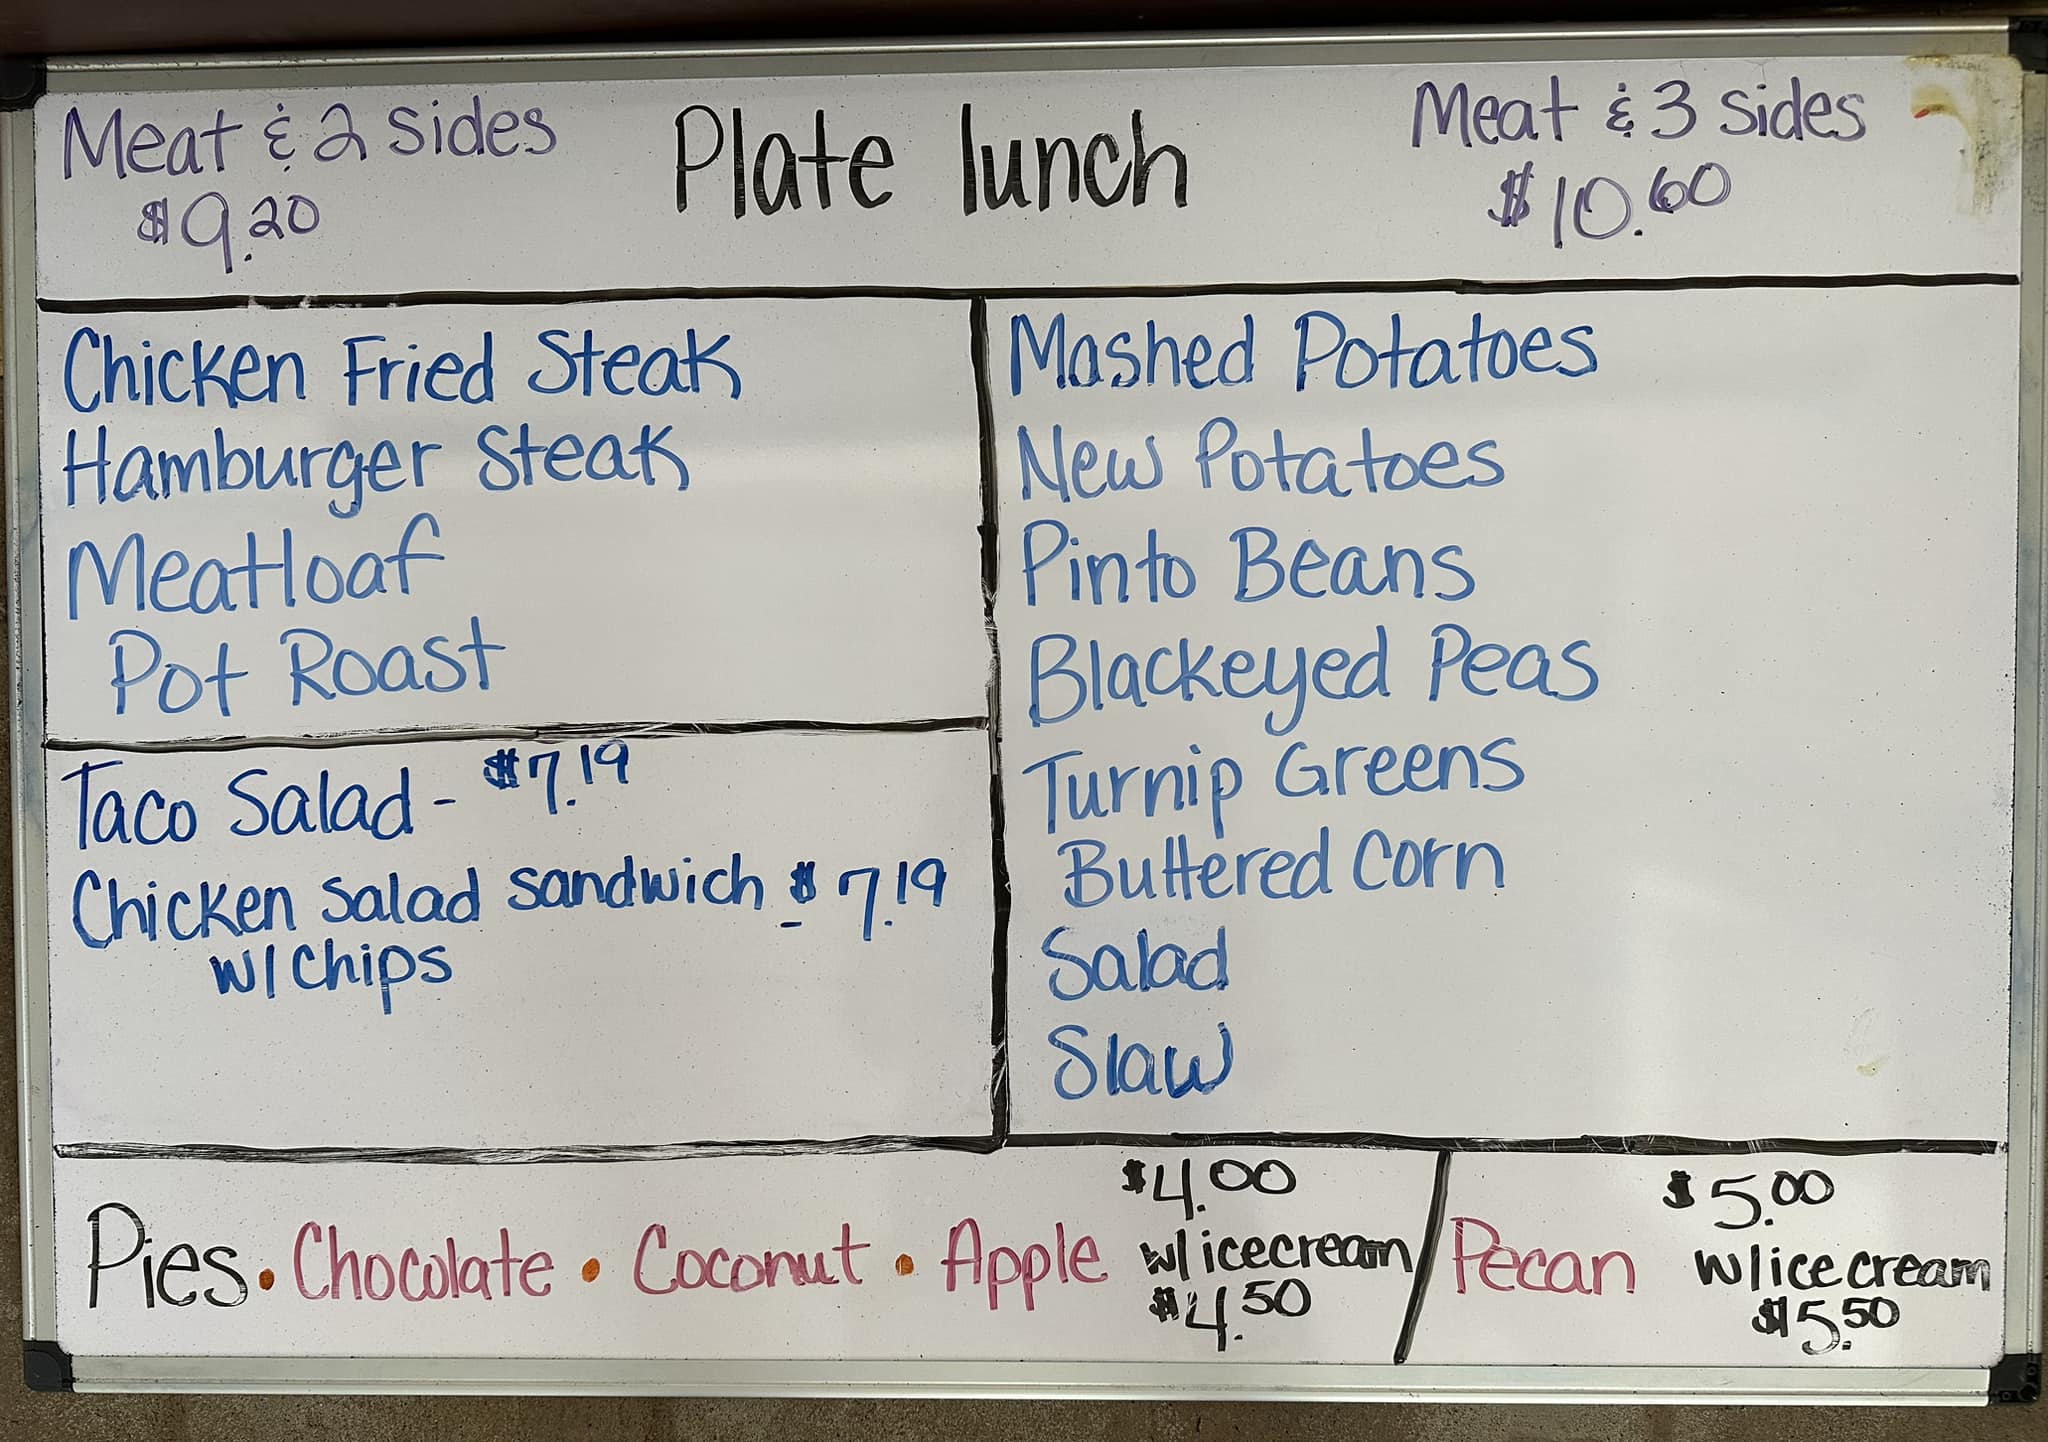 Meat & 2 sides
$9.20
Plate lunch
Meat & 3 sides
$10.60
Chicken Fried Steak
Hamburger Steak
Meatloaf
Pot Roast
Taco Salad - $7.19
Chicken salad sandwich $7.19
w/chips
Mashed Potatoes
New Potatoes
Pinto Beans
Blackeyed Peas
Turnip Greens
Buttered Corn
Salad
Slaw
Pies • Chocolate • Coconut • Apple
$4.00
w/icecream
$4.50
Pecan
$5.00
w/ice cream
$5.50